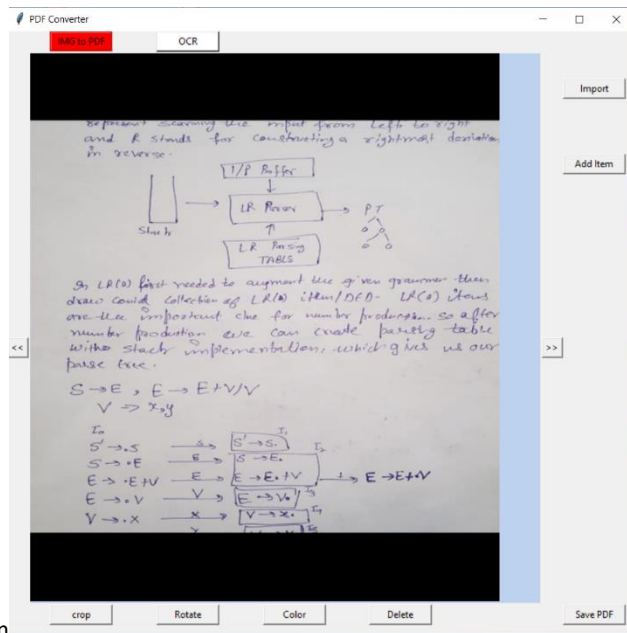 PDF Converter
IMG to PDF OCR
Import
Add Item
represent scanning the input from left to right
and R stands for constructing a rightmost derivation
in reverse.
I/P Buffer
LR Parser
PT
Stack
LR Parsing
TABLE
In LR(0) first needed to augment the given grammer then
draw could collection of LR(0) item/DFD. LR(0) items
are the important clue for number production. So after
number production we can create parsing table
withe stack implementation, which gives us our
parse tree.
<< >>
S → E , E → E+V/V
V => x,y
I₀ I₁
S' → .S S S' → S. I₂
S → .E E S → E.
E → .E+V E E → E.+V + E → E+.V
E → .V V E → V. I₃
V → .X X V → x. I₄
I₅
crop Rotate Color Delete Save PDF
n